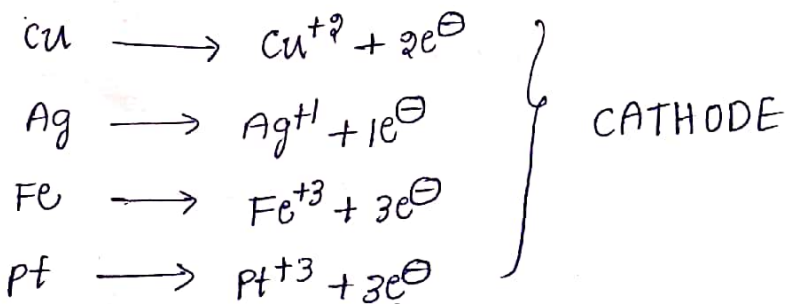 Cu → Cu⁺² + 2e⊖
Ag → Ag⁺¹ + 1e⊖
Fe → Fe⁺³ + 3e⊖
Pt → Pt⁺³ + 3e⊖
CATHODE